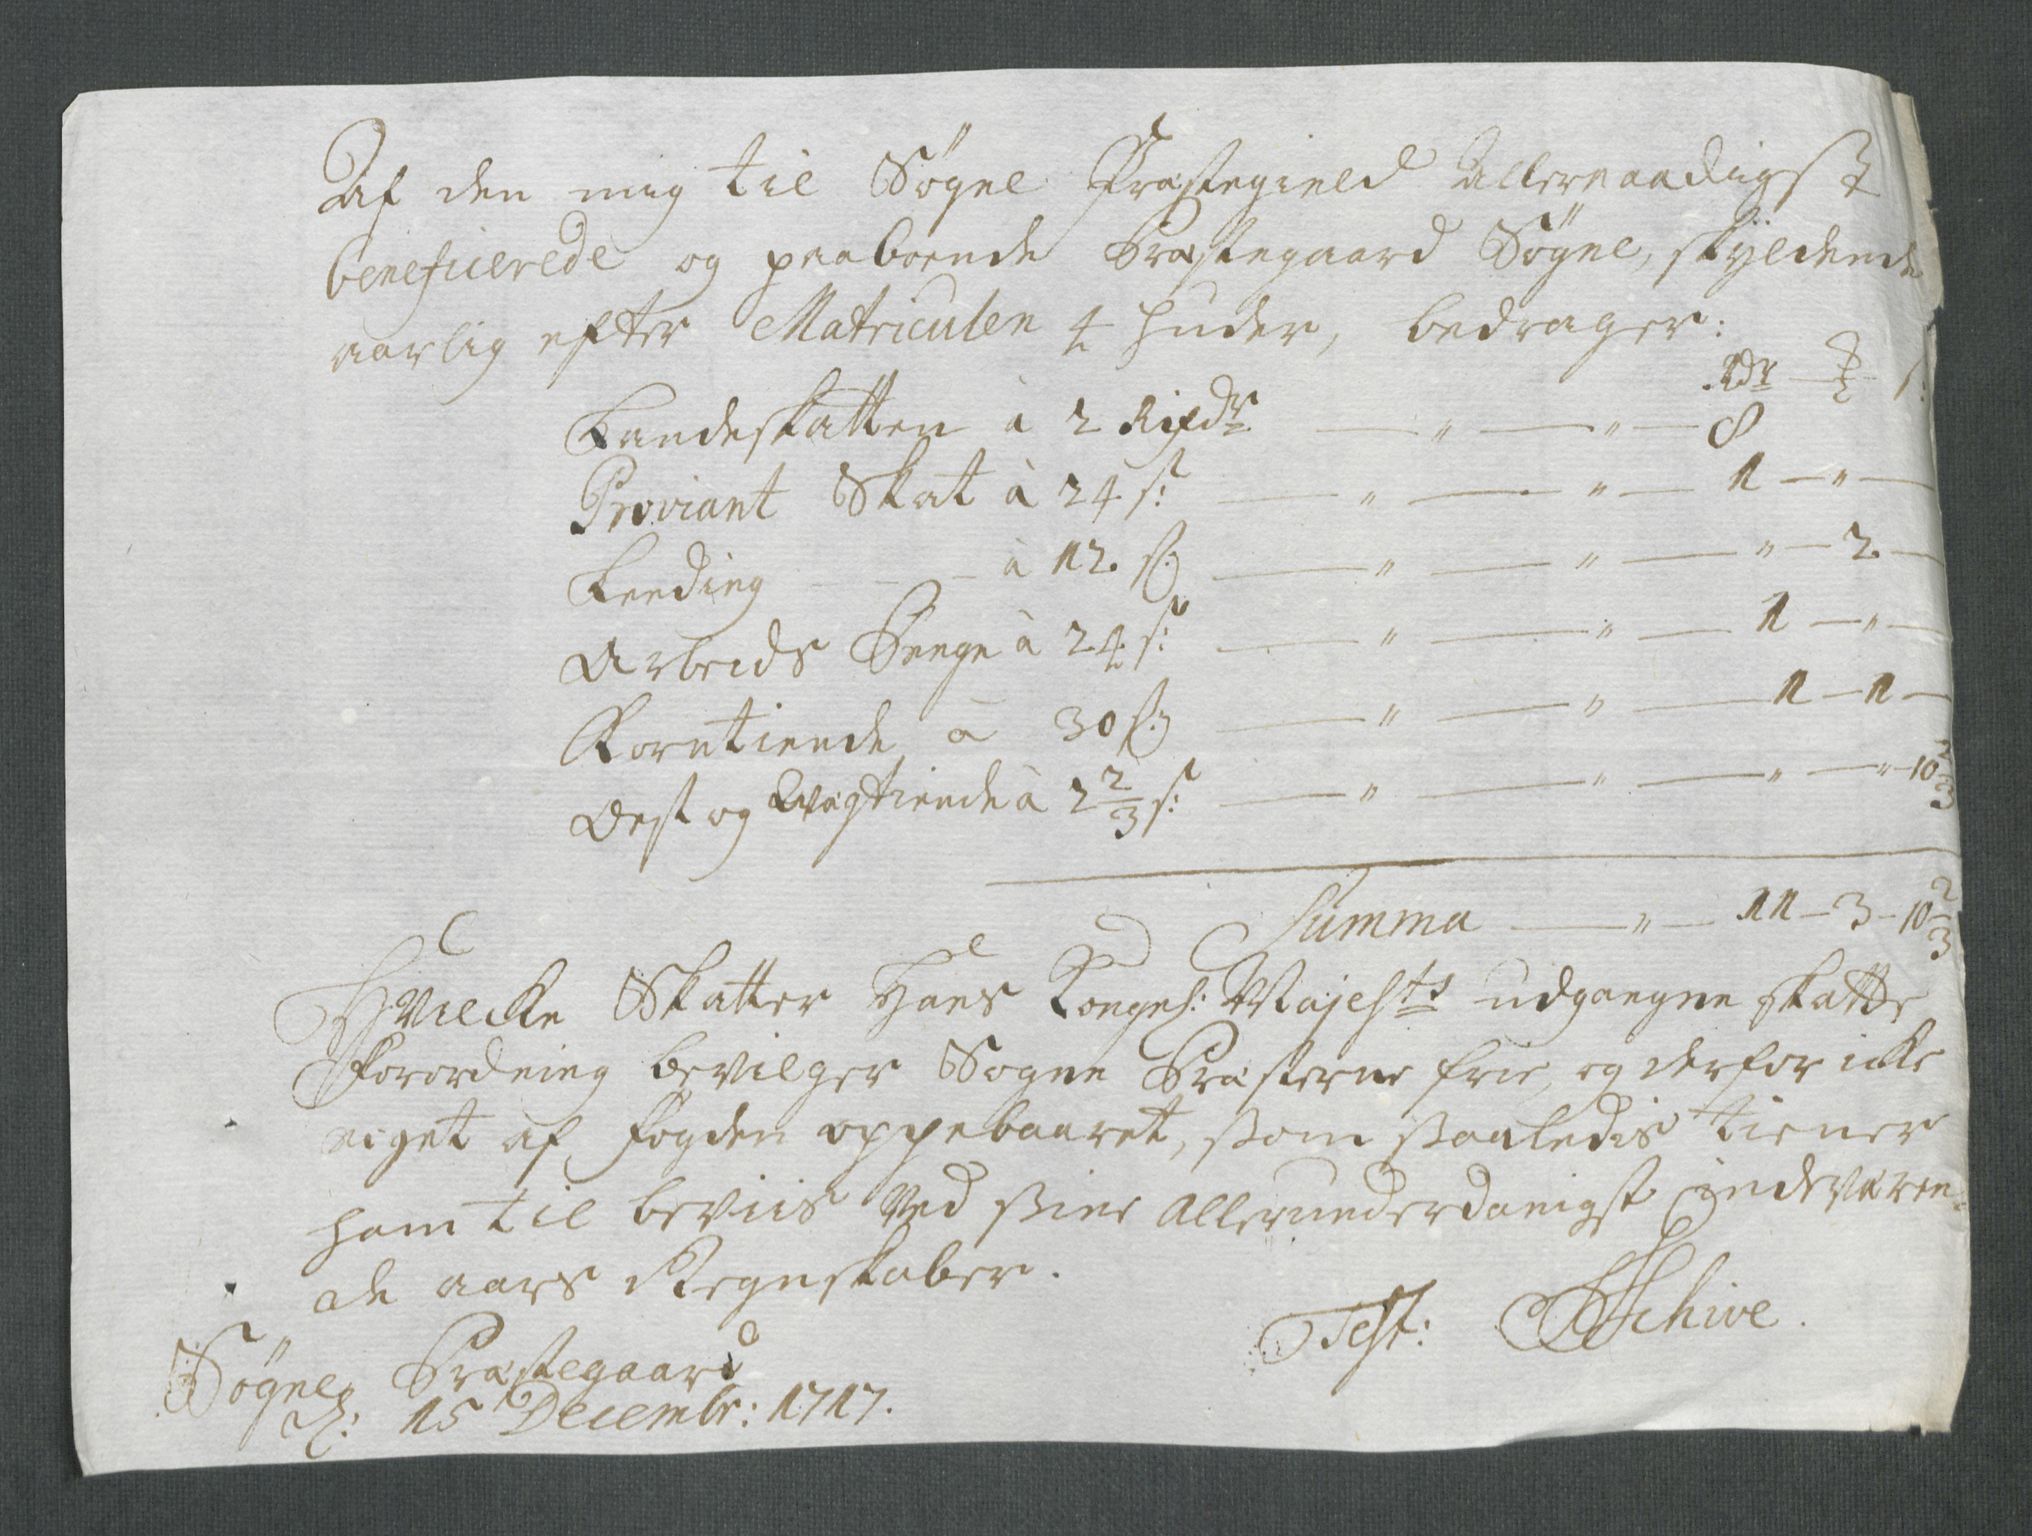 Af den mig til Søgne Præstegield Allernaadigst
beneficerede og paaboende Præstegaard Søgne, skyldende
aarlig efter Matriculen 4 huder, bedrager:
Rdr — ʒ — s:
Landeskatten à 2 Rixdr — " — " — 8
Proviant Skat à 24 s: — " — " — 1 — " —
Leeding — à 12. sʒ — " — " — " — 2. —
Arbeids Penge à 24 s: — " — " — 1 — " —
Korntiende à 30 sʒ — " — " — 1 — 1 —
Oest og Qvægtiende à 2 2/3 s: — " — " — " — " — 10 2/3
Summa — " — 11 — 3 — 10 2/3
Hvilcke Skatter Hans Kongel: Majests udgangne skatte
Forordning bevilger Sogne Præsterne frie, og derfor icke
noget af Fogden oppebaaret, som saaledis tiener
ham til beviis ved sine Allerunderdanigst indeværen-
de aars Regnskaber.
Test: Schive.
Søgne Præstegaard
d: 15 Decembr: 1717.